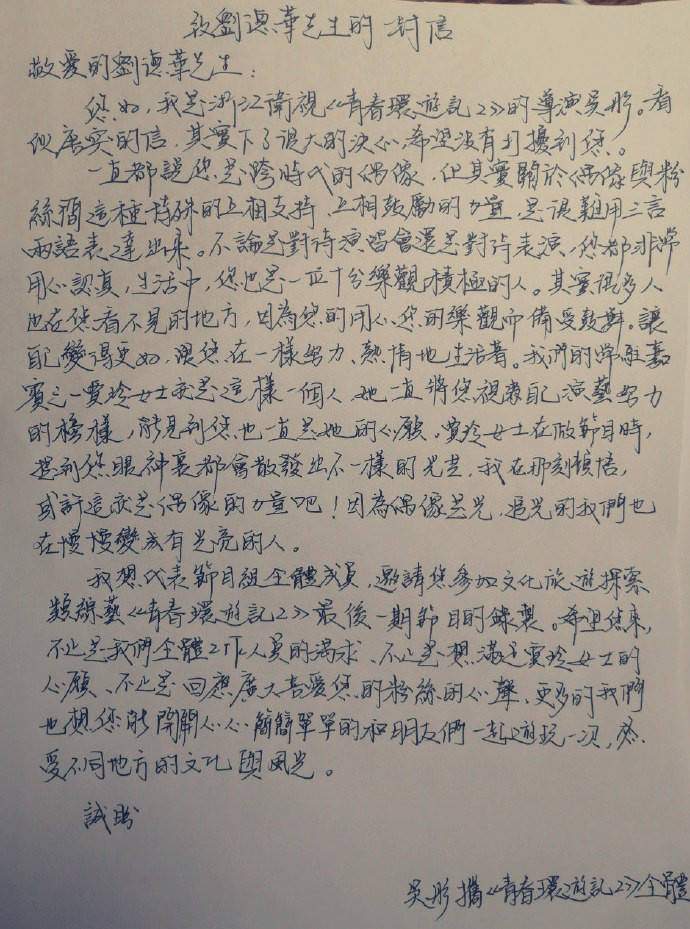 致劉德華先生的一封信
敬愛的劉德華先生：
您好，我是浙江衛視《青春環遊記2》的導演吳彤。看
似唐突的信，其實下了很大的決心，希望沒有打擾到您。
一直都說您是跨時代的偶像，但其實關於偶像與粉
絲間這種特殊的互相支持、互相鼓勵的力量，是很難用三言
兩語表達出來。不論是對待演唱會還是對待表演，您都非常
用心認真，生活中，您也是一位十分樂觀積極的人。其實很多人
也在您看不見的地方，因為您的用心您的樂觀而備受鼓舞。讓
自己變得更好，跟您在一樣努力、熱情地生活著。我們的常駐嘉
賓之一賈玲女士就是這樣一個人，她一直將您視爲自己演藝努力
的榜樣，能見到您也一直是她的心願，賈玲女士在做節目時，
提到您眼神裏都會散發出不一樣的光芒，我在那刻頓悟，
或許這就是偶像的力量吧！因為偶像是光，追光的我們也
在慢慢變成有光亮的人。
我想代表節目組全體成員，邀請您參加文化旅遊探索
類綜藝《青春環遊記2》最後一期節目的錄製。希望您來，
不止是我們全體工作人員的渴求、不止是想滿足賈玲女士的
心願、不止是回應廣大喜愛您的粉絲的心聲，更多的我們
也想您能開開心心簡簡單單的和朋友們一起遊玩一次，感
受不同地方的文化與風光。
誠盼
吳彤攜《青春環遊記2》全體